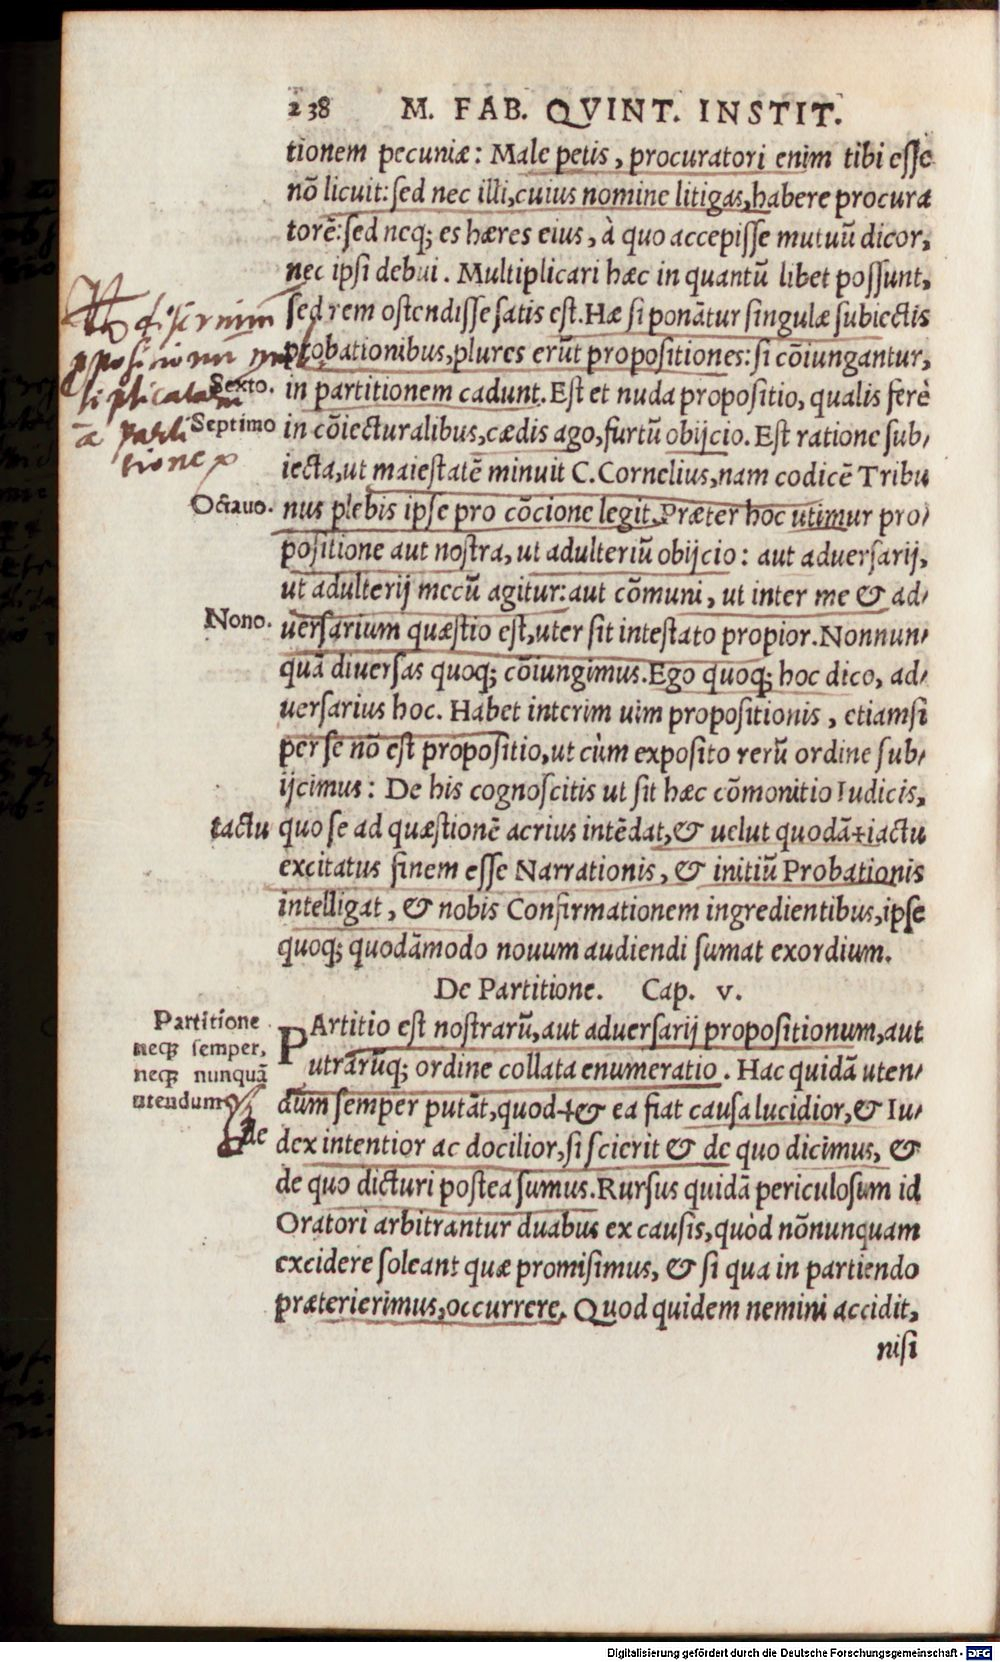 238 M. FAB. QVINT. INSTIT.
tionem pecuniæ: Male petis, procuratori enim tibi esse
nō licuit: sed nec illi, cuius nomine litigas, habere procura
torē: sed neq; es hæres eius, à quo accepisse mutuū dicor,
nec ipsi debui. Multiplicari hæc in quantū libet possunt,
sed rem ostendisse satis est. Hæ si ponātur singulæ subiectis
probationibus, plures erūt propositiones: si cōiungantur,
Sexto.
in partitionem cadunt. Est et nuda propositio, qualis ferè
Septimo
in cōiecturalibus, cædis ago, furtū obijcio. Est ratione sub/
iecta, ut maiestatē minuit C. Cornelius, nam codicē Tribu
Octauo.
nus plebis ipse pro cōcione legit. Præter hoc utimur pro/
positione aut nostra, ut adulteriū obijcio: aut aduersarij,
ut adulterij mecū agitur: aut cōmuni, ut inter me & ad/
Nono.
uersarium quæstio est, uter sit intestato propior. Nonnun/
quā diuersas quoq; cōiungimus. Ego quoq; hoc dico, ad/
uersarius hoc. Habet interim uim propositionis, etiamsi
per se nō est propositio, ut cùm exposito rerū ordine sub/
ijcimus: De his cognoscitis ut sit hæc cōmonitio Iudicis,
tactu
quo se ad quæstionē acrius intēdat, & uelut quodā+iactu
excitatus finem esse Narrationis, & initiū Probationis
intelligat, & nobis Confirmationem ingredientibus, ipse
quoq; quodāmodo nouum audiendi sumat exordium.
De Partitione. Cap. v.
Partitione
neq; semper,
neq; nunquā
utendum
de
PArtitio est nostrarū, aut aduersarij propositionum, aut
utrarūq; ordine collata enumeratio. Hac quidā uten/
dum semper putāt, quod+& ea fiat causa lucidior, & Iu/
dex intentior ac docilior, si scierit & de quo dicimus, &
de quo dicturi postea sumus. Rursus quidā periculosum id
Oratori arbitrantur duabus ex causis, quòd nōnunquam
excidere soleant quæ promisimus, & si qua in partiendo
præterierimus, occurrere. Quod quidem nemini accidit,
nisi
Digitalisierung gefördert durch die Deutsche Forschungsgemeinschaft - DFG